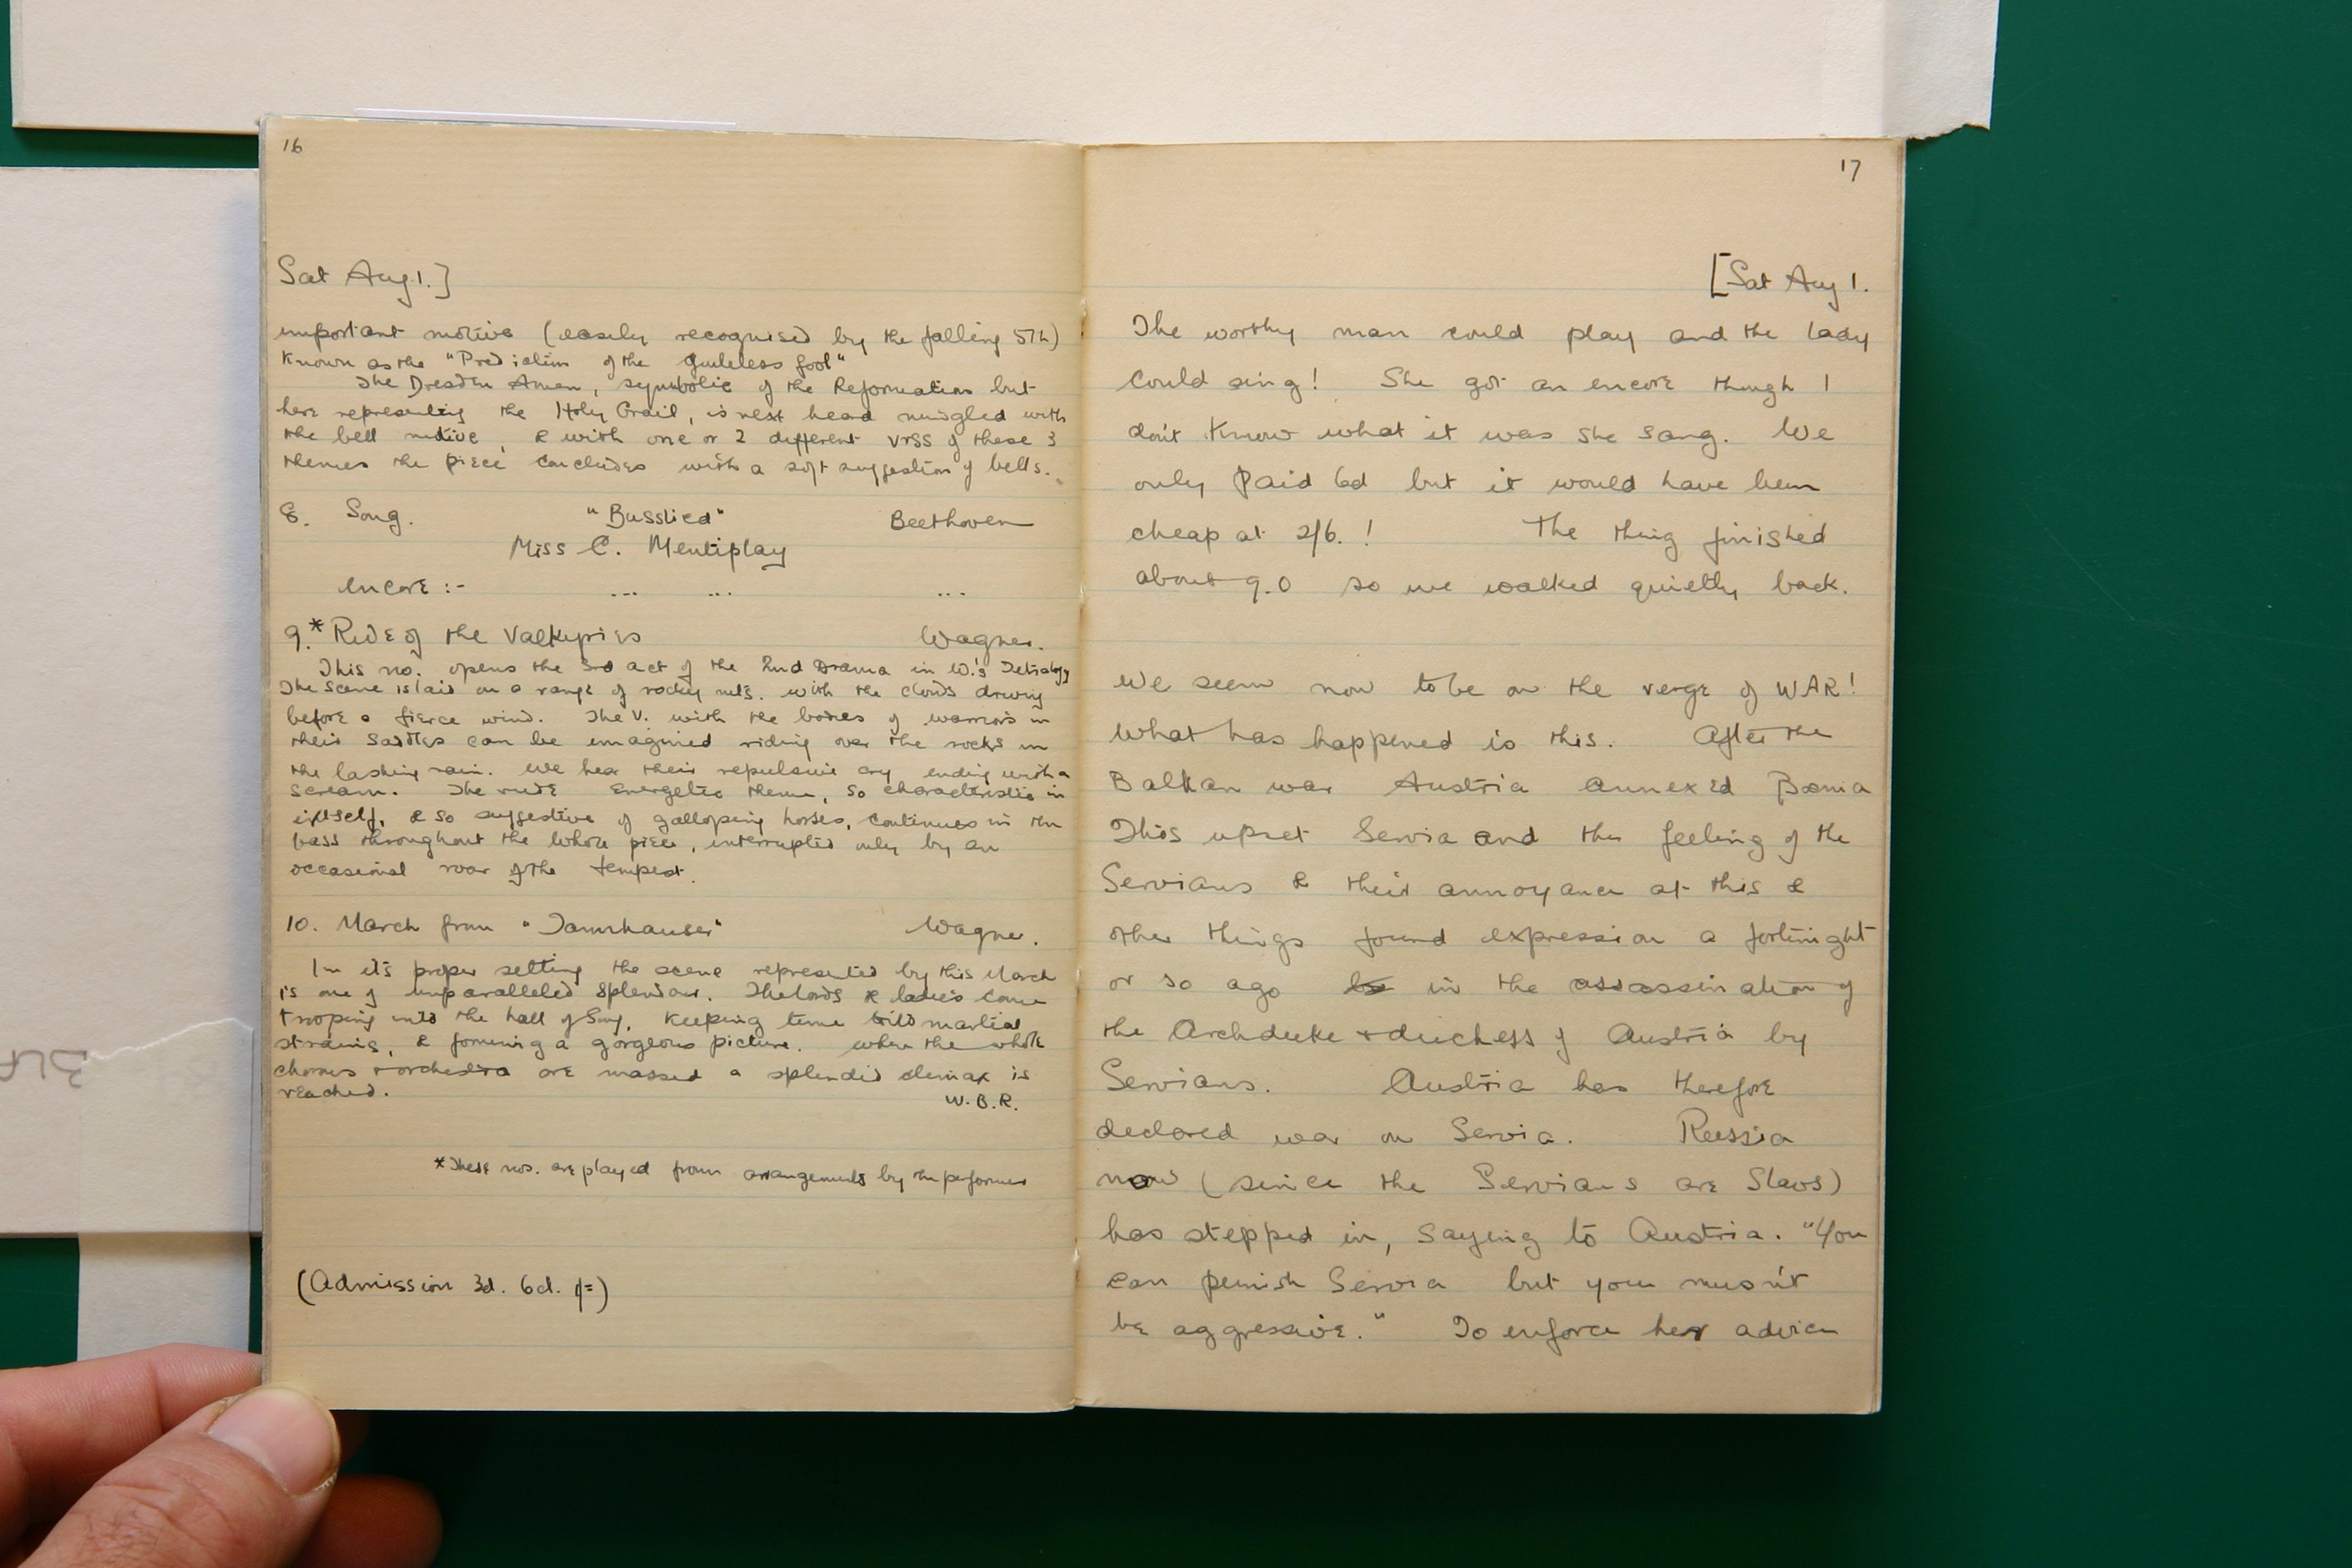 16
Sat Aug 1.]
important motive (easily recognised by the falling 5th)
known as the "Prediction of the guileless fool"
The Dresden Amen, symbolic of the Reformation but
here representing the Holy Grail, is next heard mingled with
the bell motive, & with one or 2 different vrss of these 3
themes the piece concludes with a soft suggestion of bells.
8. Song. "Busslied" Beethoven
Miss C. Mentiplay
encore :- ... ... ...
9.* Ride of the Valkyries Wagner.
This no. opens the 3rd act of the 2nd Drama in W.'s Tetralogy
The scene is laid on a range of rocky mts. with the clouds driving
before a fierce wind. The V. with the bodies of warriors in
their saddles can be imagined riding over the rocks in
the lashing rain. We hear their repulsive cry ending with a
scream. The rude energetic theme, so characteristic in
itself, & so suggestive of galloping horses, continues in the
bass throughout the whole piece, interrupted only by an
occasional roar of the tempest.
10. March from "Tannhauser" Wagner.
In its proper setting the scene represented by this March
is one of unparalleled splendour. The lords & ladies come
trooping into the hall of Song, keeping time to its martial
strains, & forming a gorgeous picture. When the whole
chorus + orchestra are massed a splendid climax is
reached.
W.B.R.
*These nos. are played from arrangements by the performer
(Admission 3d. 6d. 1/=)
17
[Sat Aug 1.
The worthy man could play and the lady
could sing! She got an encore though I
don't know what it was she sang. We
only paid 6d but it would have been
cheap at 2/6. ! The thing finished
about 9.0 so we walked quietly back.
We seem now to be on the verge of WAR!
What has happened is this. After the
Balkan war Austria annexed Bosnia
This upset Servia and the feeling of the
Servians & their annoyance at this &
other things found expression a fortnight
or so ago in the assassination of
the Archduke + duchess of Austria by
Servians. Austria has therefore
declared war on Servia. Russia
now (since the Servians are Slavs)
has stepped in, saying to Austria. "You
can punish Servia but you musn't
be aggressive." To enforce her advice